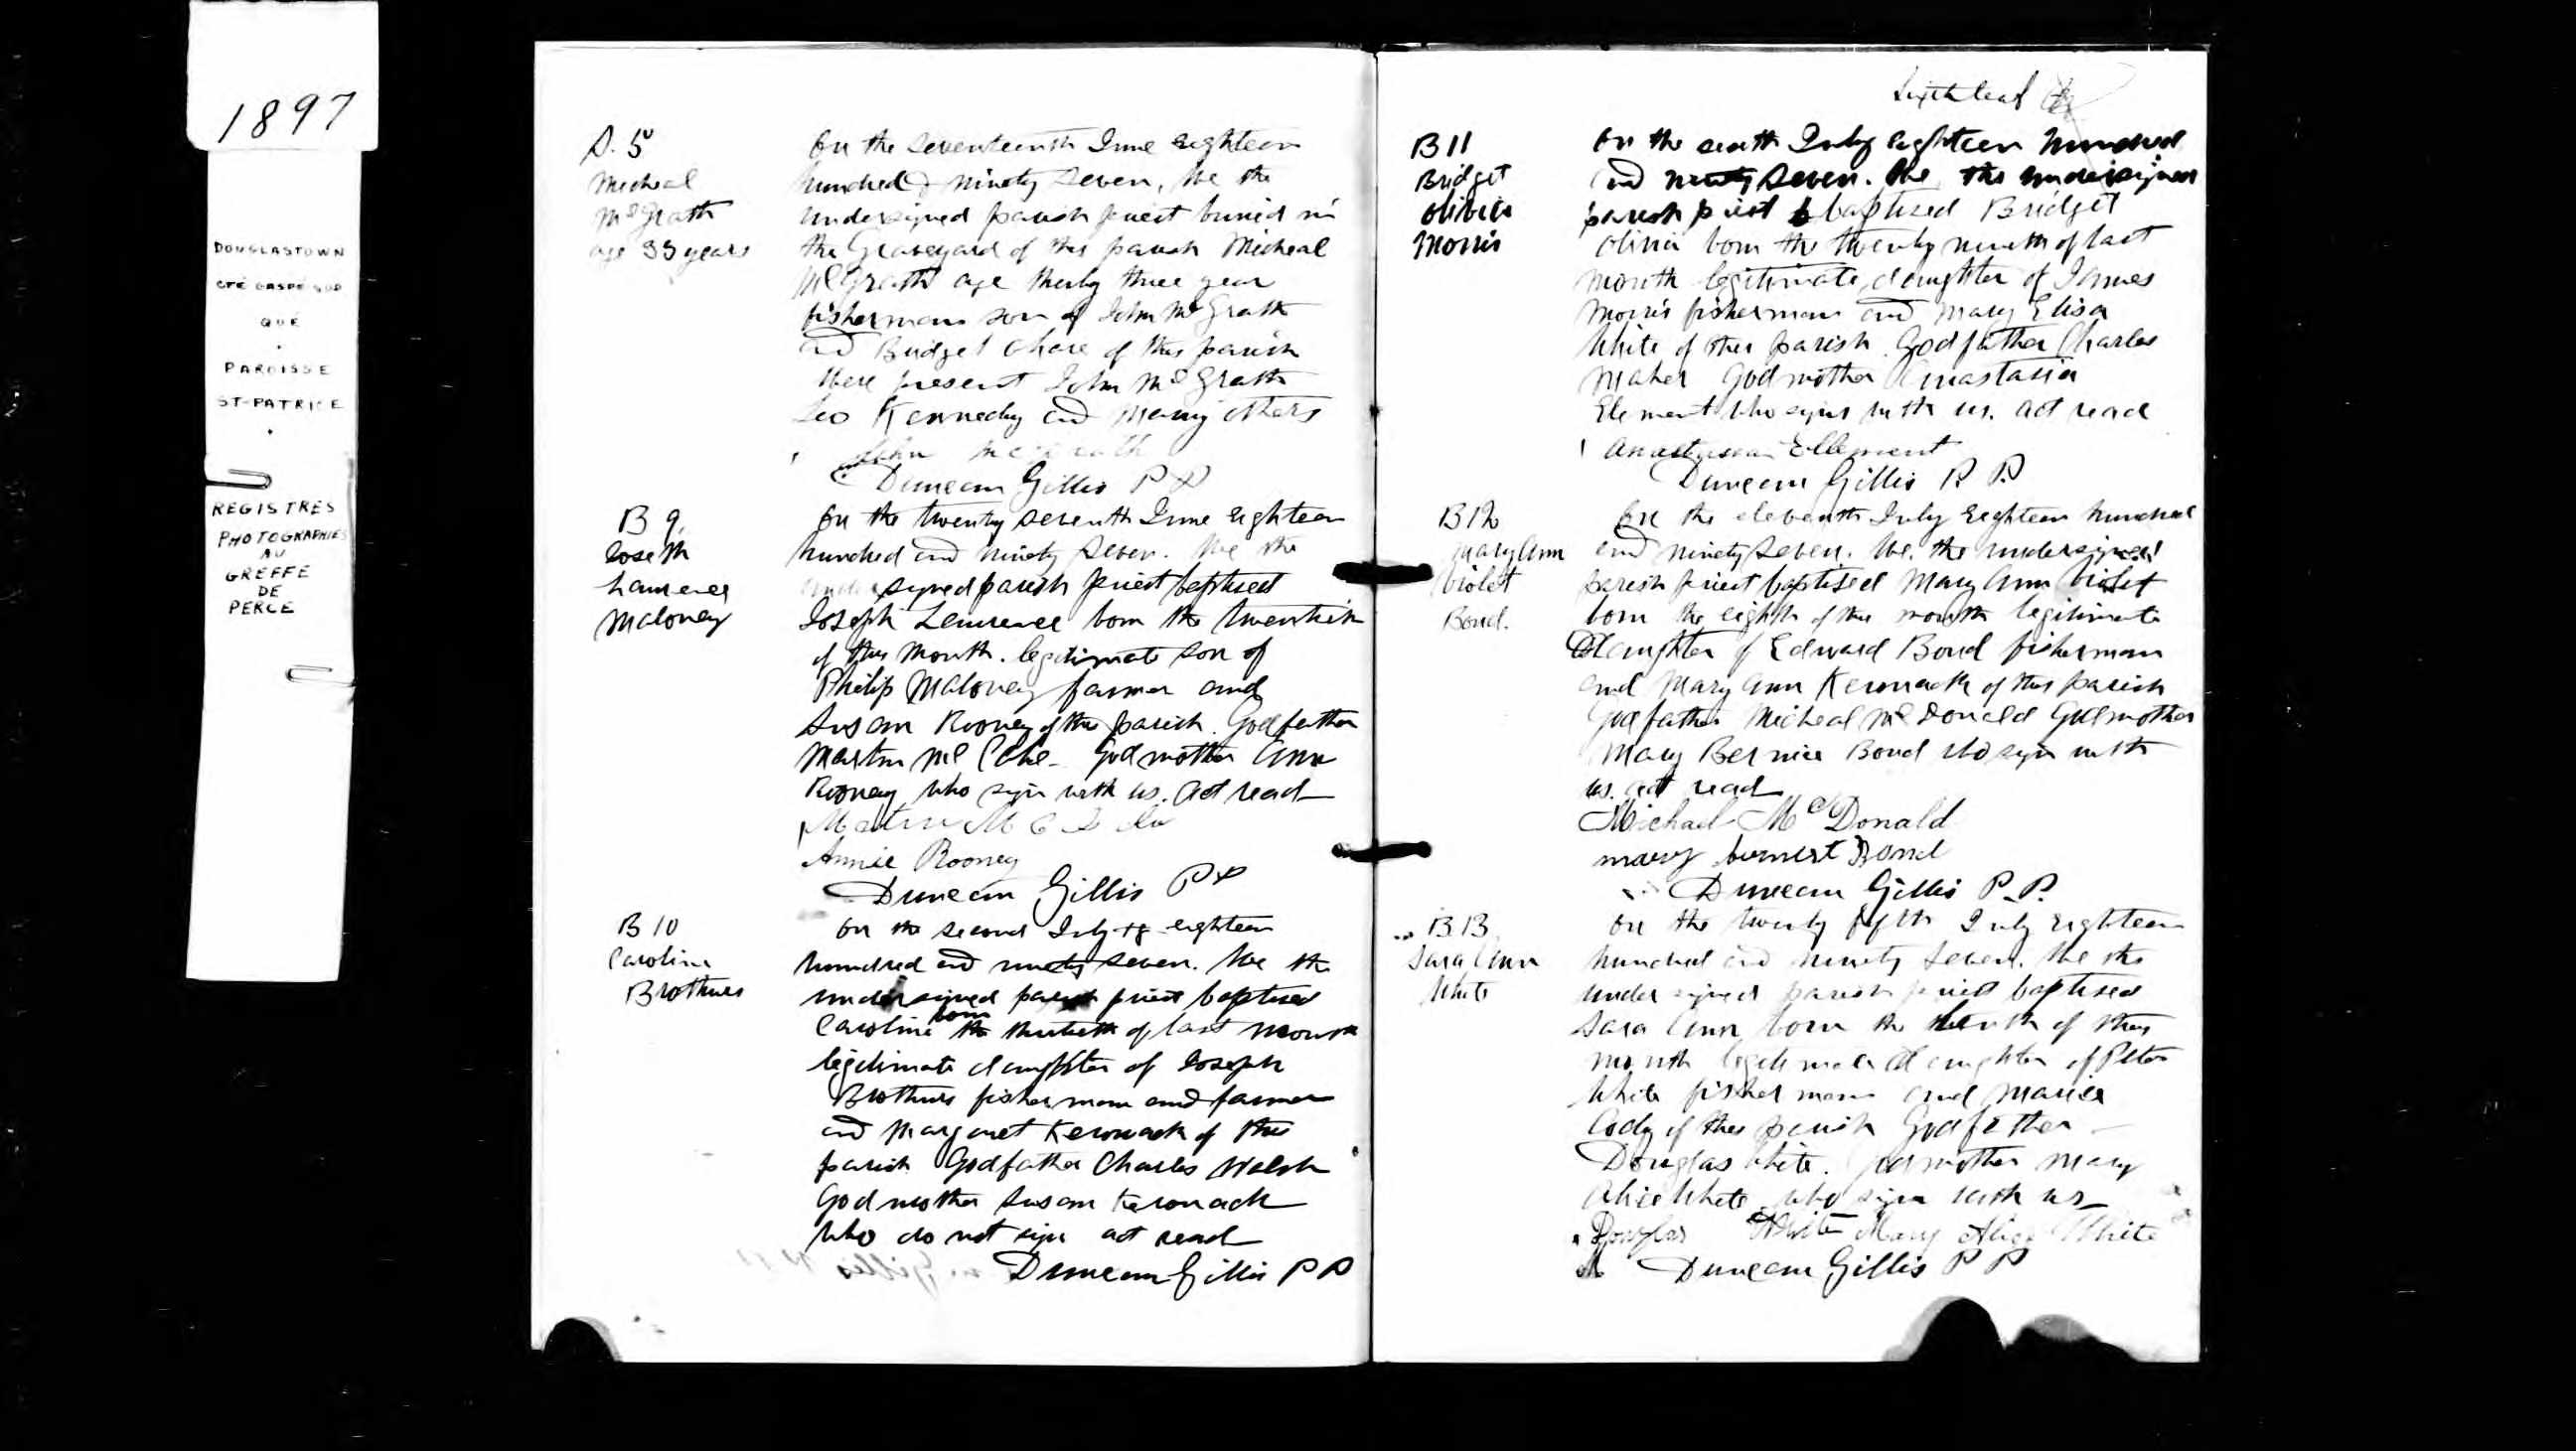 1897
DOUGLASTOWN
CTÉ GASPÉ SUD
QUÉ
PAROISSE
ST-PATRICE
REGISTRES
PHOTOGRAPHIÉS
AU
GREFFE
DE
PERCÉ
S. 5
Micheal
McGrath
age 33 years
On the seventeenth June eighteen
hundred & ninety seven, We the
undersigned parish priest buried in
the Graveyard of this parish Micheal
McGrath age thirty three year
fisherman son of John McGrath
and Bridget of this parish
Were present John McGrath
Leo Kennedy and Many others
John McGrath
Duncan Gillis PP
B 9.
Joseph
Laurence
Maloney
On the twenty seventh June eighteen
hundred and ninety seven. We the
undersigned parish priest baptised
Joseph Laurence born the twentieth
of this month. legitimate son of
Philip Maloney farmer and
Susan Rooney of this parish. Godfather
Martin Mc Godmother Ann
Rooney who sign with us. Act read
Annie Rooney
Duncan Gillis PP
B 10
Caroline
Brothers
On the second July 18 eighteen
hundred and ninety seven. We the
undersigned parish priest baptised
Caroline born the thirtieth of last month
legitimate daughter of Joseph
Brothers fisherman and farmer
and Margaret Kerouack of this
parish Godfather Charles Walsh
Godmother Susan Kerouack
who do not sign act read
Duncan Gillis PP
Sixth leaf
B 11
Bridget
Olivia
Morris
On the July eighteen hundred
and ninety seven. We the undersigned
parish priest baptised Bridget
Olivia born the twenty ninth of last
month legitimate daughter of James
Morris fisherman and Mary Elisa
White of this parish. Godfather Charles
Maher Godmother Anastasia
Element who signs with us. act read
Anastasia Ellement
Duncan Gillis P. P.
B 12
Mary Ann
Violet
Bond.
On the eleventh July Eighteen hundred
and ninety seven. We. the undersigned
parish priest baptised Mary Ann Violet
born the eighth of this month legitimate
Daughter of Edward Bond fisherman
and Mary Ann Kerouack of this parish
Godfather Micheal McDonald Godmother
Mary Bernice Bond who sign with
us. act read
Michael McDonald
mary Bond
Duncan Gillis P.P.
B 13
Sara Ann
White
On the twenty fifth July Eighteen
hundred and ninety seven. We the
undersigned parish priest baptised
Sara Ann born the of this
month legitimate daughter of Peter
White fisherman and Maria
Cody of this parish Godfather
Douglas White. Godmother Mary
Alice White who sign with us
Douglas White Mary Alice White
Duncan Gillis PP